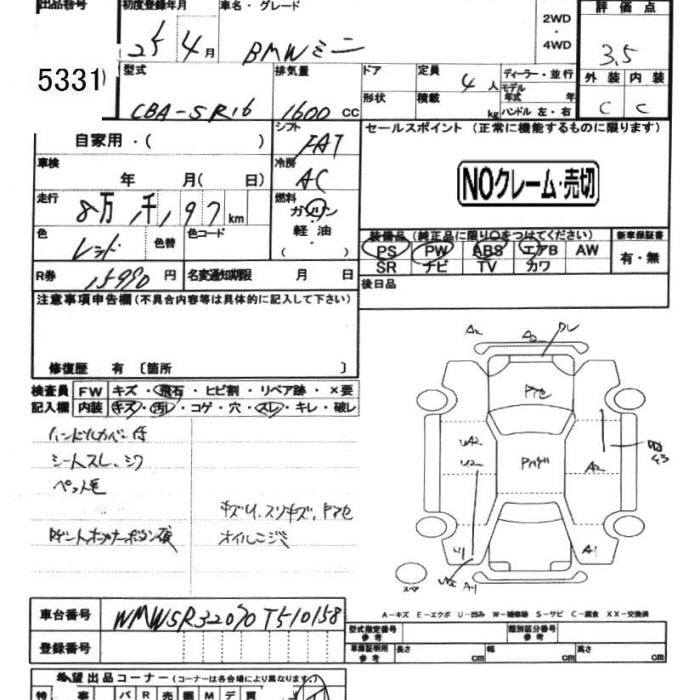 出品番号 初度登録年月 車名・グレード 評価点
25年 4月 BMWミニ 2WD・4WD 3.5
5331 型式 CBA-SR16 排気量 1600 CC ドア 形状 定員 4人 積載 kg ディーラー・並行 モデル年式 年 ハンドル 左・右 外装 内装 C C
自家用・( ) シフト FAT セールスポイント (正常に機能するものに限ります)
車検 年 月( 日) 冷房 AC
NOクレーム・売切
走行 8万 千,197 km 燃料 ガソリン・軽油 ( )
色 レッド 色替 色コード
装備品(純正品に限り○をつけてください) 新車保証書
PS PW ABS エアB AW 有・無
SR ナビ TV カワ
R券 15990 円 名変通知期限 月 日
後日品
注意事項申告欄(不具合内容等は具体的に記入して下さい)
修復歴 有 〔箇所 〕
検査員記入欄 FW キズ・飛石・ヒビ割・リペア跡・×要
内装 キズ・汚レ・コゲ・穴・スレ・キレ・破レ
ハンドルカバー付
シートスレ、シワ
ペット毛
オイルニジミ
A2 A2
UA2 U2 A2
U1 A1
スペア
A-キズ E-エクボ U-凹み W-補修跡 S-サビ C-腐食 XX-交換済
車台番号 WMWSR32070T510158
型式指定番号 参考 類別区分番号 参考
登録番号 車庫証明用 参考 長さ cm 幅 cm 高さ cm
希望出品コーナー (コーナーは各会場により異なります。)
特 事 パ R 売 鑑 M デ 買